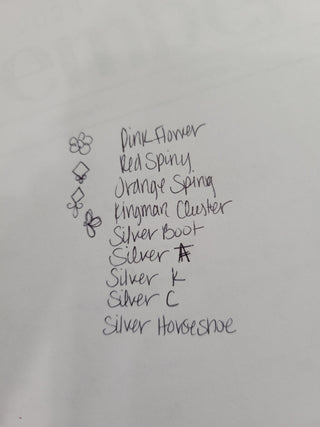 Pink Flower
Red Spiny
Orange Spiny
Kingman Cluster
Silver Boot
Silver A
Silver K
Silver C
Silver Horseshoe